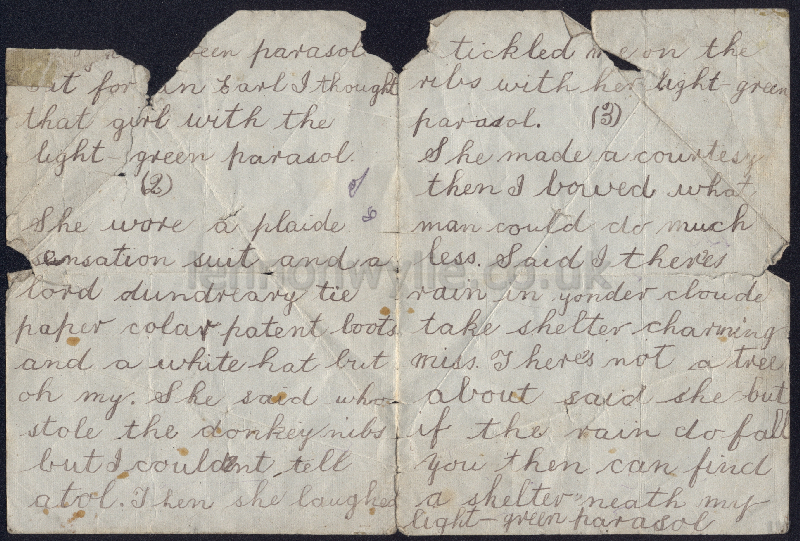 een parasol
but for an Earl I thought
that girl with the
light-green parasol.
(2)
She wore a plaide
sensation suit and a
lord dundreary tie
paper colar patent boots
and a white hat but
oh my. She said who
stole the donkey nibs
but I couldnt tell
atol. Then she laughed
tickled me on the
ribs with her light-green
parasol. (3)
She made a courtesy
then I bowed what
man could do much
less. Said I there's
rain in yonder cloude
take shelter charming
miss. There's not a tree
about said she but
if the rain do fall
you then can find
a shelter neath my
light-green parasol
lennonwylie.co.uk